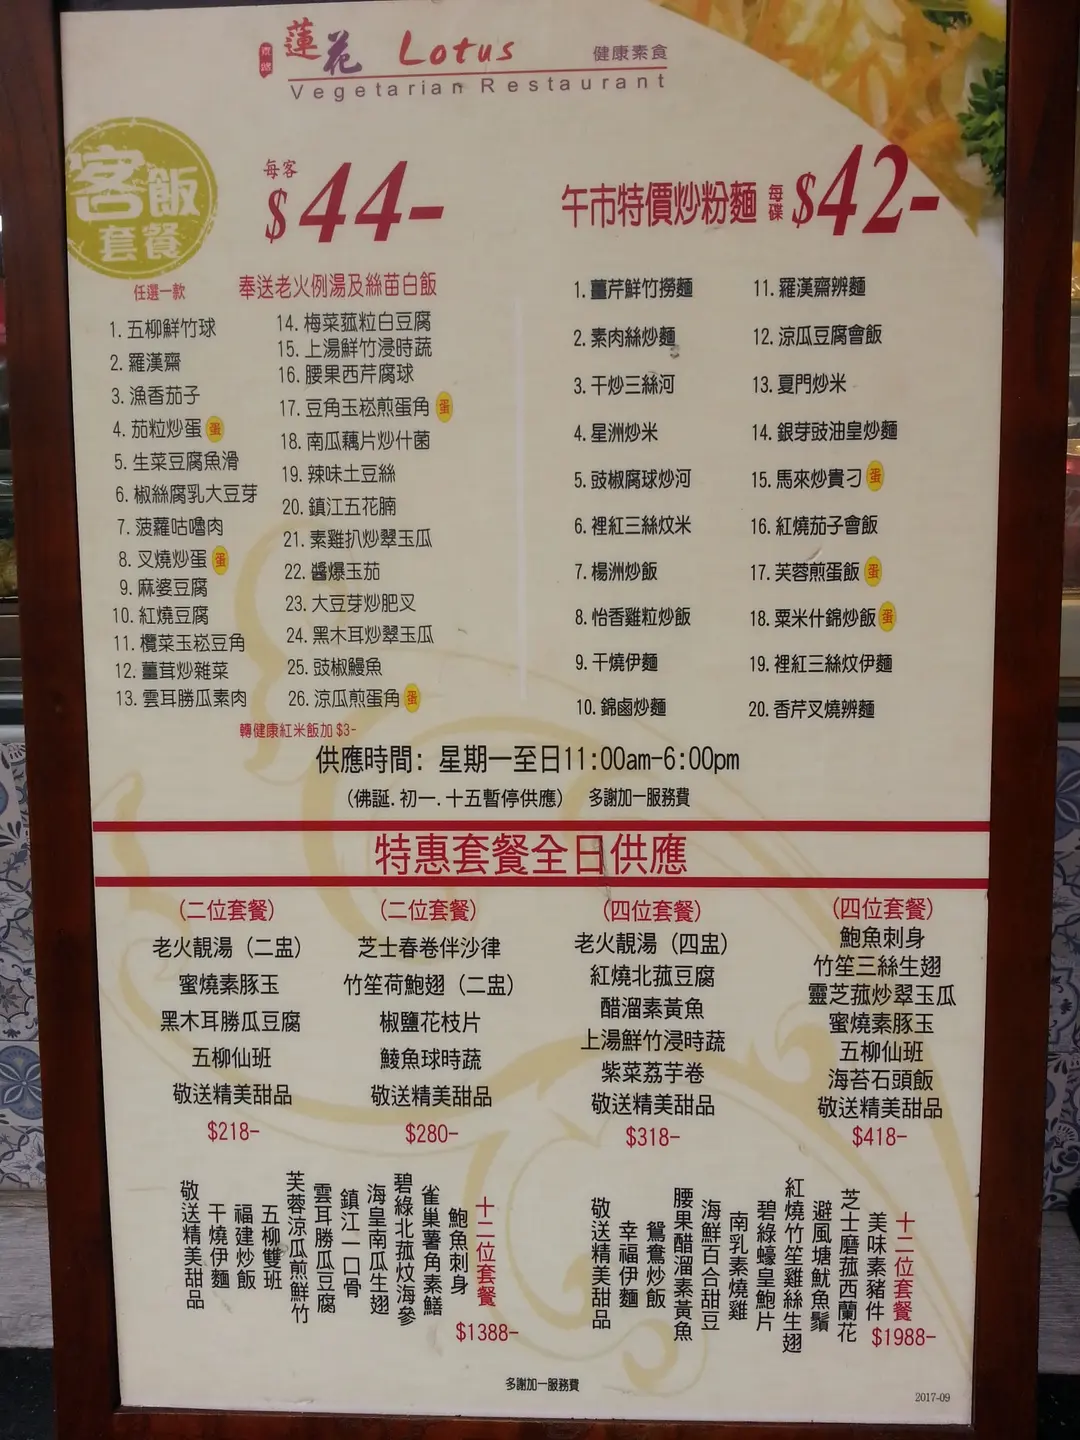 蓮花 Lotus 健康素食
Vegetarian Restaurant
客飯
套餐
每客
$44-
午市特價炒粉麵 每碟 $42-
任選一款
奉送老火例湯及絲苗白飯
1. 五柳鮮竹球
2. 羅漢齋
3. 漁香茄子
4. 茄粒炒蛋 蛋
5. 生菜豆腐魚滑
6. 椒絲腐乳大豆芽
7. 菠蘿咕嚕肉
8. 叉燒炒蛋 蛋
9. 麻婆豆腐
10. 紅燒豆腐
11. 欖菜玉崧豆角
12. 薑茸炒雜菜
13. 雲耳勝瓜素肉
14. 梅菜菰粒白豆腐
15. 上湯鮮竹浸時蔬
16. 腰果西芹腐球
17. 豆角玉崧煎蛋角 蛋
18. 南瓜藕片炒什菌
19. 辣味土豆絲
20. 鎮江五花腩
21. 素雞扒炒翠玉瓜
22. 醬爆玉茄
23. 大豆芽炒肥叉
24. 黑木耳炒翠玉瓜
25. 豉椒鰻魚
26. 涼瓜煎蛋角 蛋
轉健康紅米飯加 $3-
1. 薑芹鮮竹撈麵
2. 素肉絲炒麵
3. 干炒三絲河
4. 星洲炒米
5. 豉椒腐球炒河
6. 裡紅三絲炆米
7. 楊洲炒飯
8. 怡香雞粒炒飯
9. 干燒伊麵
10. 錦鹵炒麵
11. 羅漢齋辦麵
12. 涼瓜豆腐會飯
13. 夏門炒米
14. 銀芽豉油皇炒麵
15. 馬來炒貴刁 蛋
16. 紅燒茄子會飯
17. 芙蓉煎蛋飯 蛋
18. 粟米什錦炒飯 蛋
19. 裡紅三絲炆伊麵
20. 香芹叉燒辦麵
供應時間: 星期一至日11:00am-6:00pm
(佛誕. 初一. 十五暫停供應) 多謝加一服務費
特惠套餐全日供應
(二位套餐)
老火靚湯 (二盅)
蜜燒素豚玉
黑木耳勝瓜豆腐
五柳仙班
敬送精美甜品
$218-
(二位套餐)
芝士春卷伴沙律
竹笙荷鮑翅 (二盅)
椒鹽花枝片
鯪魚球時蔬
敬送精美甜品
$280-
(四位套餐)
老火靚湯 (四盅)
紅燒北菰豆腐
醋溜素黃魚
上湯鮮竹浸時蔬
紫菜荔芋卷
敬送精美甜品
$318-
(四位套餐)
鮑魚刺身
竹笙三絲生翅
靈芝菰炒翠玉瓜
蜜燒素豚玉
五柳仙班
海苔石頭飯
敬送精美甜品
$418-
十二位套餐
鮑魚刺身
雀巢薯角素鱔
碧綠北菰炆海參
海皇南瓜生翅
鎮江一口骨
雲耳勝瓜豆腐
芙蓉涼瓜煎鮮竹
五柳雙班
福建炒飯
干燒伊麵
敬送精美甜品
$1388-
十二位套餐
美味素豬件
芝士磨菰西蘭花
避風塘魷魚鬚
紅燒竹笙雞絲生翅
碧綠蠔皇鮑片
南乳素燒雞
海鮮百合甜豆
腰果醋溜素黃魚
鴛鴦炒飯
幸福伊麵
敬送精美甜品
$1988-
多謝加一服務費
2017-09